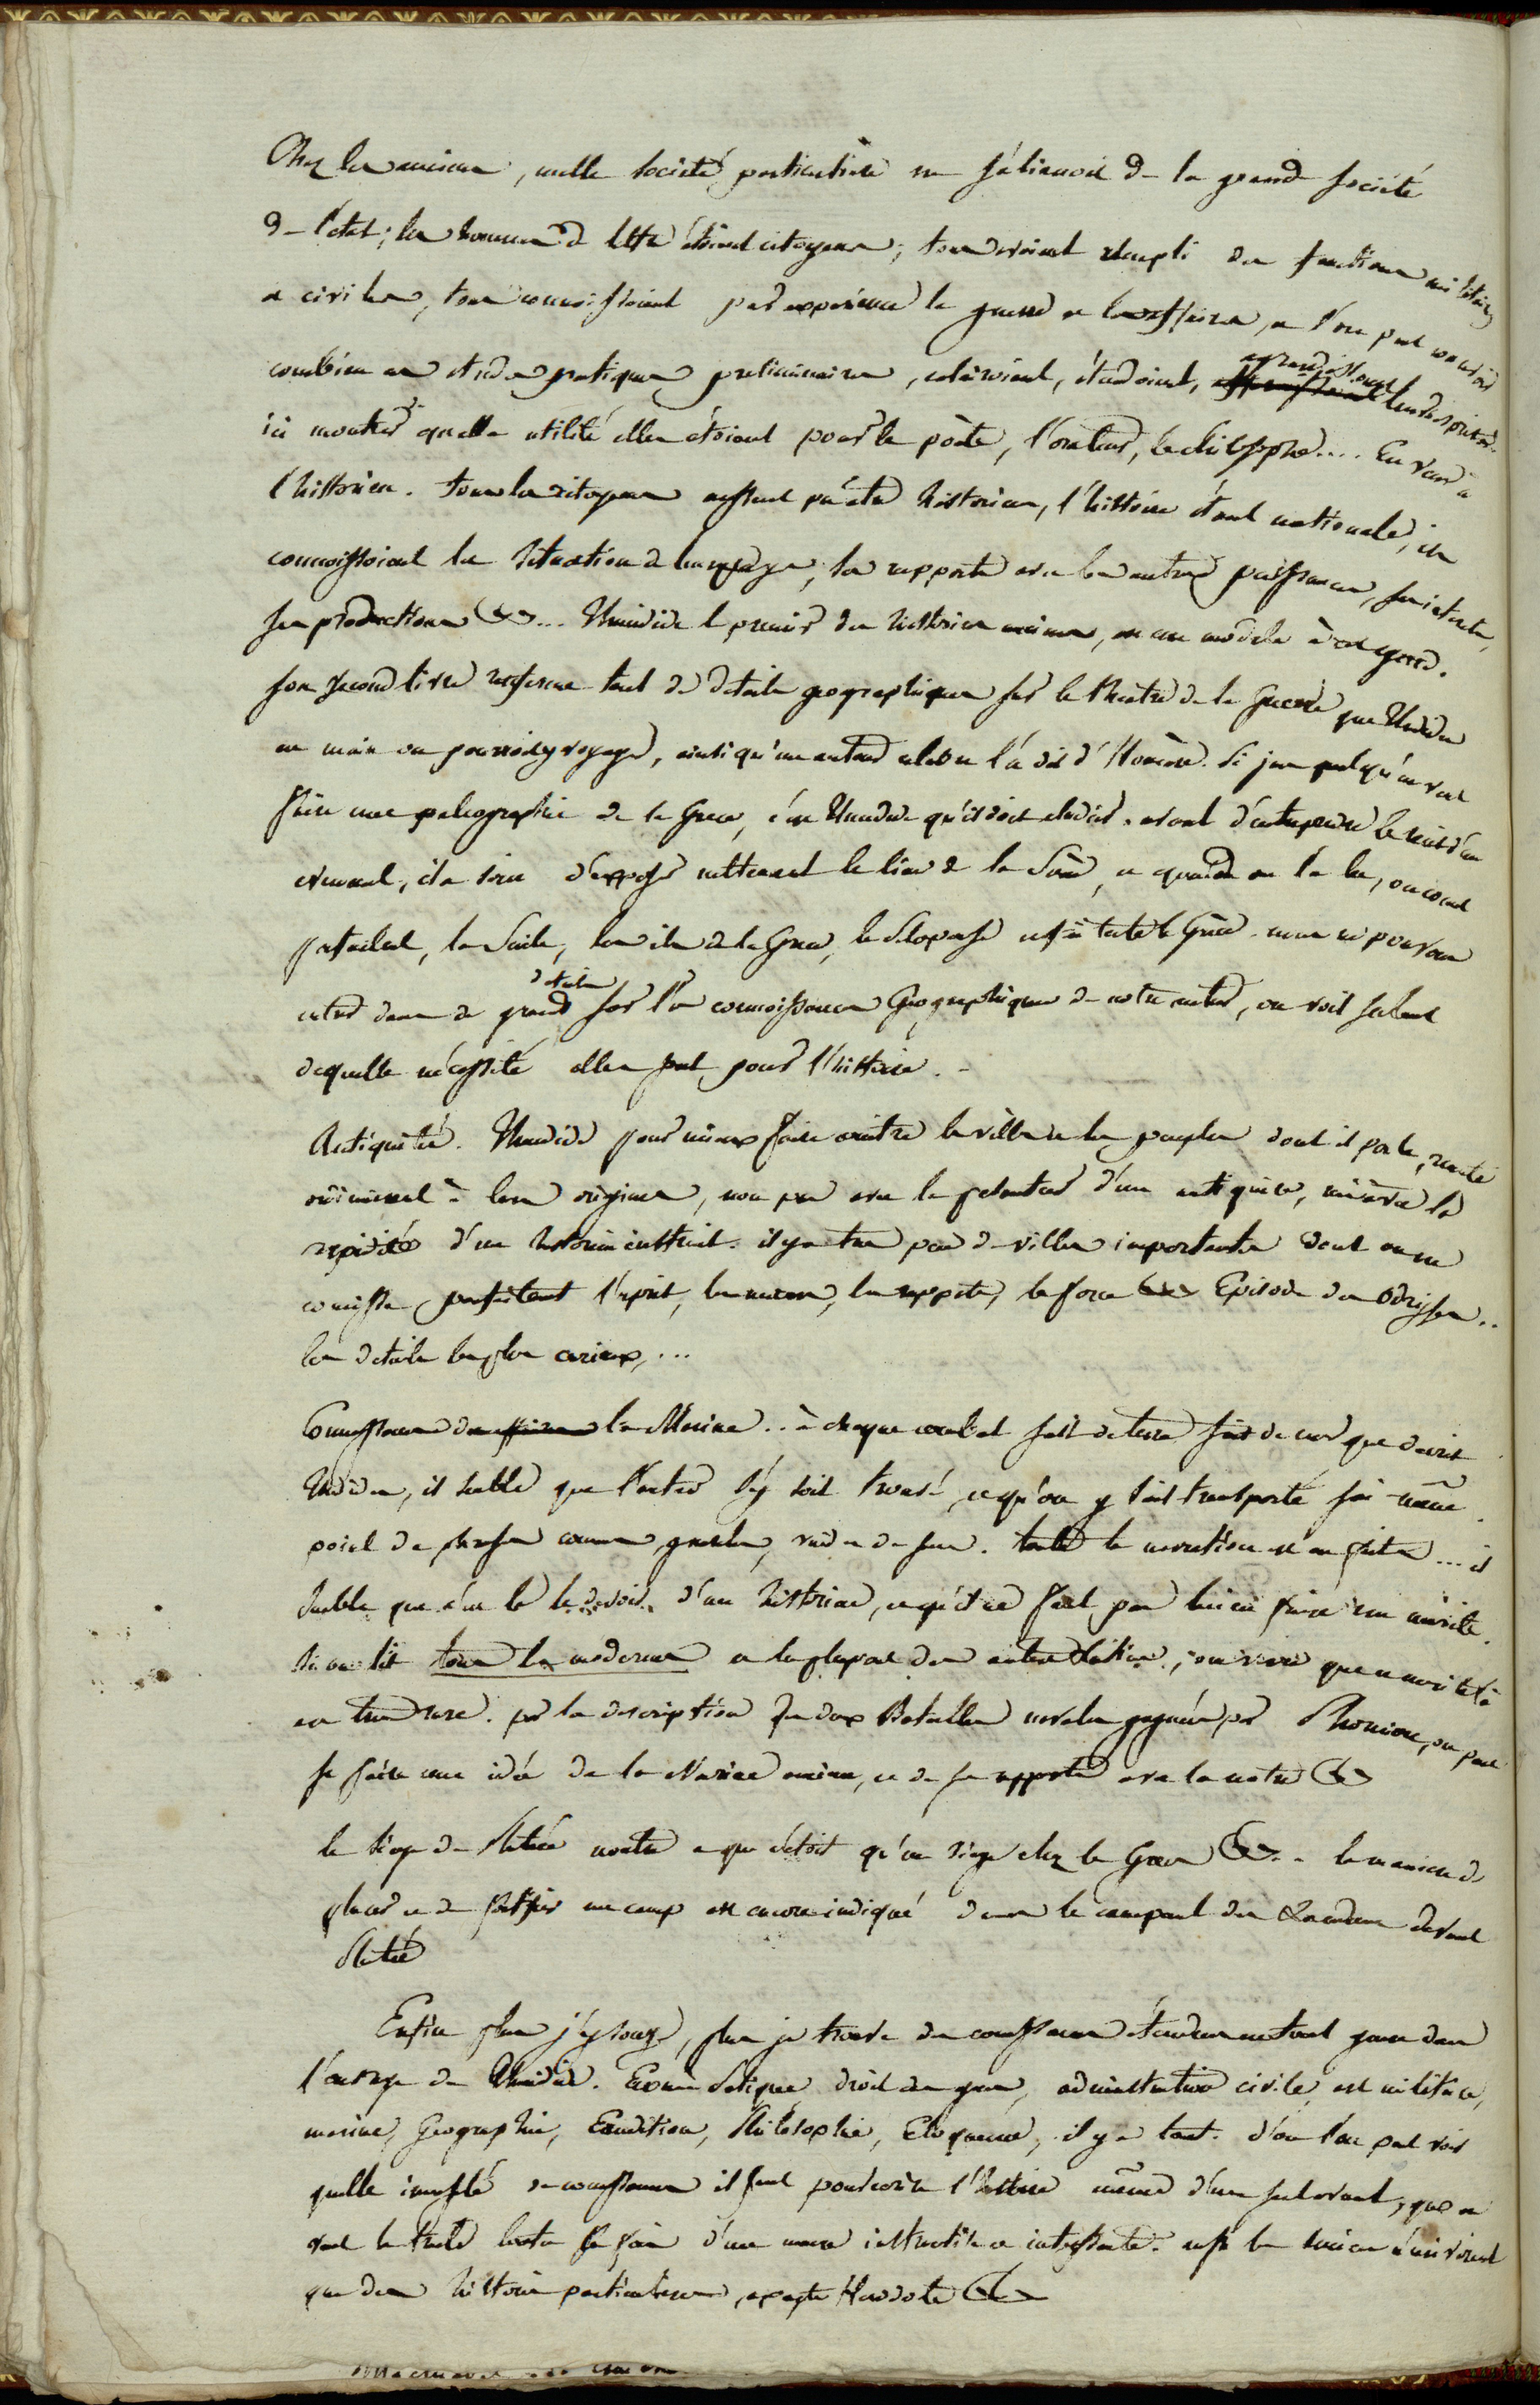 Chez les anciens, nulle société particulière ne s'éliminoit de la grande société
de l'état; les hommes de lettres étoient citoyens; tous avoient rempli des fonctions militaires
et civiles, tous connoissoient par experience la guerre et les affaires, et l'on peut concevoir
combien ces etudes pratiques preliminaires, eclairoient, étendoient, agrandissoient leurs esprits.
ici montrer quelle utilité elles étoient pour le poète, l'orateur, le philosophe.... En venir à
l'historien. tous les citoyens eussent pu être historiens, l'histoire étant nationale; ils
connoissoient la situation de leur pays, les rapports avec les autres puissances, ses interets,
ses productions &c... Thucidide le premier des historiens anciens, est un modèle à cet egard.
son second livre renferme tant de details geographiques sur le theatre de la guerre que Thucidide
en main on pourroit y voyager, ainsi qu'un auteur l'a dit d'Homère. Si jamais quelqu'un veut
faire une paleographie de la Grece, c'est Thucidide qu'il doit etudier. avant d'entreprendre le recit d'un
evenement, il a soin d'exposer nettement le lieu de la Scène, et quand on l'a lu, on connoit
parfaitement, la Sicile, les iles de la Grece, le Peloponese et toute la Grèce. nous ne pouvons
entrer dans de grands details sur les connoissances Geographiques de notre auteur, on voit seulement
de quelle nécessité elles sont pour l'histoire. -
Antiquités. Thucidide pour mieux faire connoitre les villes et les peuples dont il parle, remonte
ordinairement à leur origine, non pas avec la pesanteur d'un antiquaire, mais avec la
rapidité d'un historien instruit. il y a tres peu de villes importantes dont on ne
connoisse parfaitement l'esprit, les mœurs, les rapports, la force &c Episode des Odryses..
les details les plus curieux,...
Connoissances de la Marine.. à chaque combat soit de terre soit de mer que decrit
Thucidide, il semble que l'auteur s'y soit trouvé, et qu'on y soit transporté soi même.
point de phrases communes, generales, vuides de sens. toute la narration est en faits... il
semble que c'est là le devoir d'un historien, et qu'il ne faut pas lui en faire un mérite.
Si on lit tous les modernes et la plupart des anciens, on verra que ce merite là
est tres rare. par la description des deux Batailles navales gagnées par Phormion, on peut
se faire une idée de la Marine ancienne, et de ses rapports avec la notre &c
le siege de Platée montre ce que c'étoit qu'un siege chez les Grecs &c.. la maniere de
placer et de fortifier un camp est encore indiqué dans le campement des devant
Platée
Enfin plus j'y songe, plus je trouve des connoissances étendues en tout genre dans
l'ouvrage de Thucidide. Economie Politique, droit des gens, administration civile, et militaire,
marine, Geographie, Erudition, Philosophie, Eloquence, il y a tout. d'où l'on peut voir
quelle immensité de connoissances il faut pour ecrire l'histoire même d'un seul evenement, quand on
veut la traiter d'une maniere instructive et interessante. les anciens n'ecrivoient
que des histoires particulieres, excepté Herodote &c